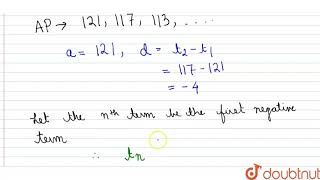 AP → 121, 117, 113, . . . .
a = 121, d = t₂ - t₁
= 117 - 121
= - 4
Let the nᵗʰ term be the first negative
term
∴ tn
doubtnut